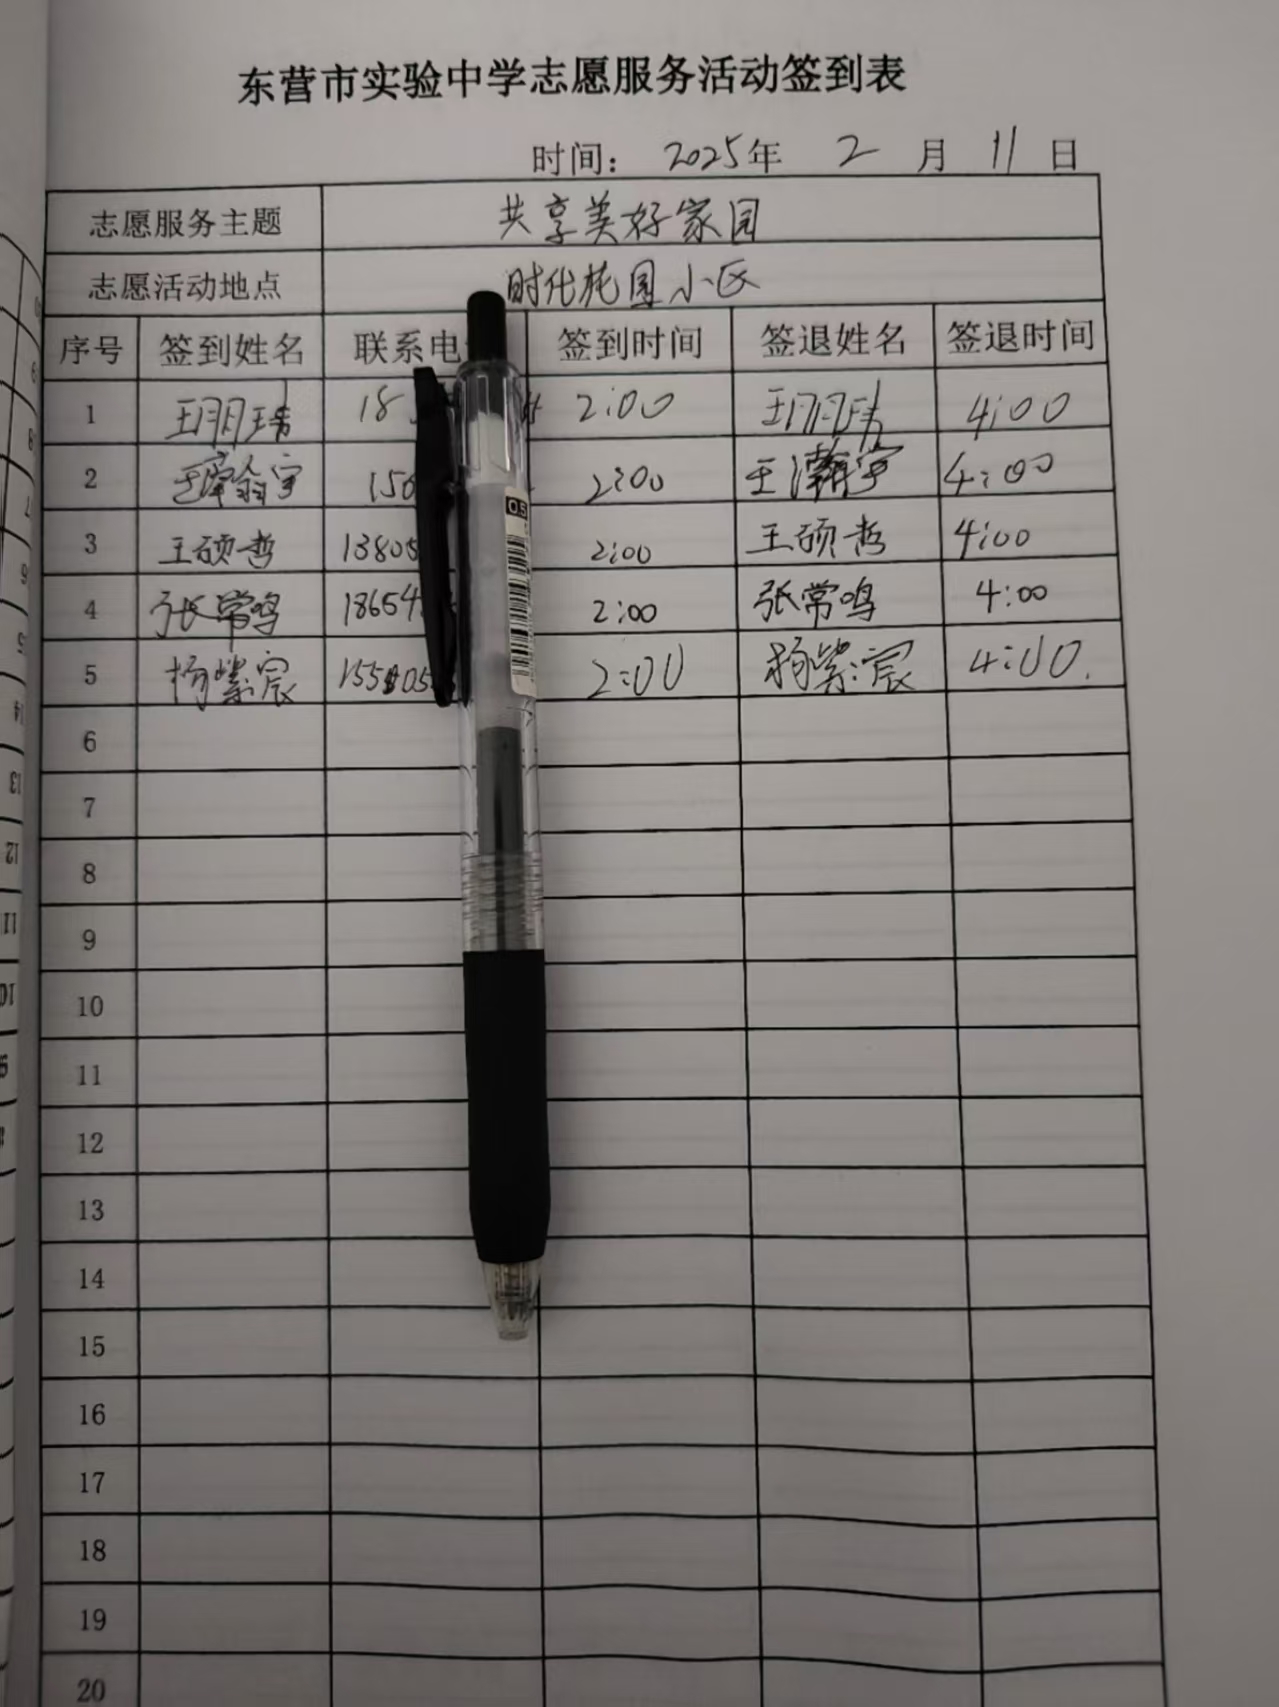 东营市实验中学志愿服务活动签到表
时间： 2025年 2 月 11 日
志愿服务主题 共享美好家园
志愿活动地点 时代花园小区
序号 签到姓名 联系电 签到时间 签退姓名 签退时间
1 王玥玮 18 2:00 王玥玮 4:00
2 150 2:00 王瀚宇 4:00
3 王硕哲 13805 2:00 王硕哲 4:00
4 张常鸣 18654 2:00 张常鸣 4:00
5 杨紫宸 155 05 2:00 杨紫宸 4:00.
6
7
8
9
10
11
12
13
14
15
16
17
18
19
20
0.5